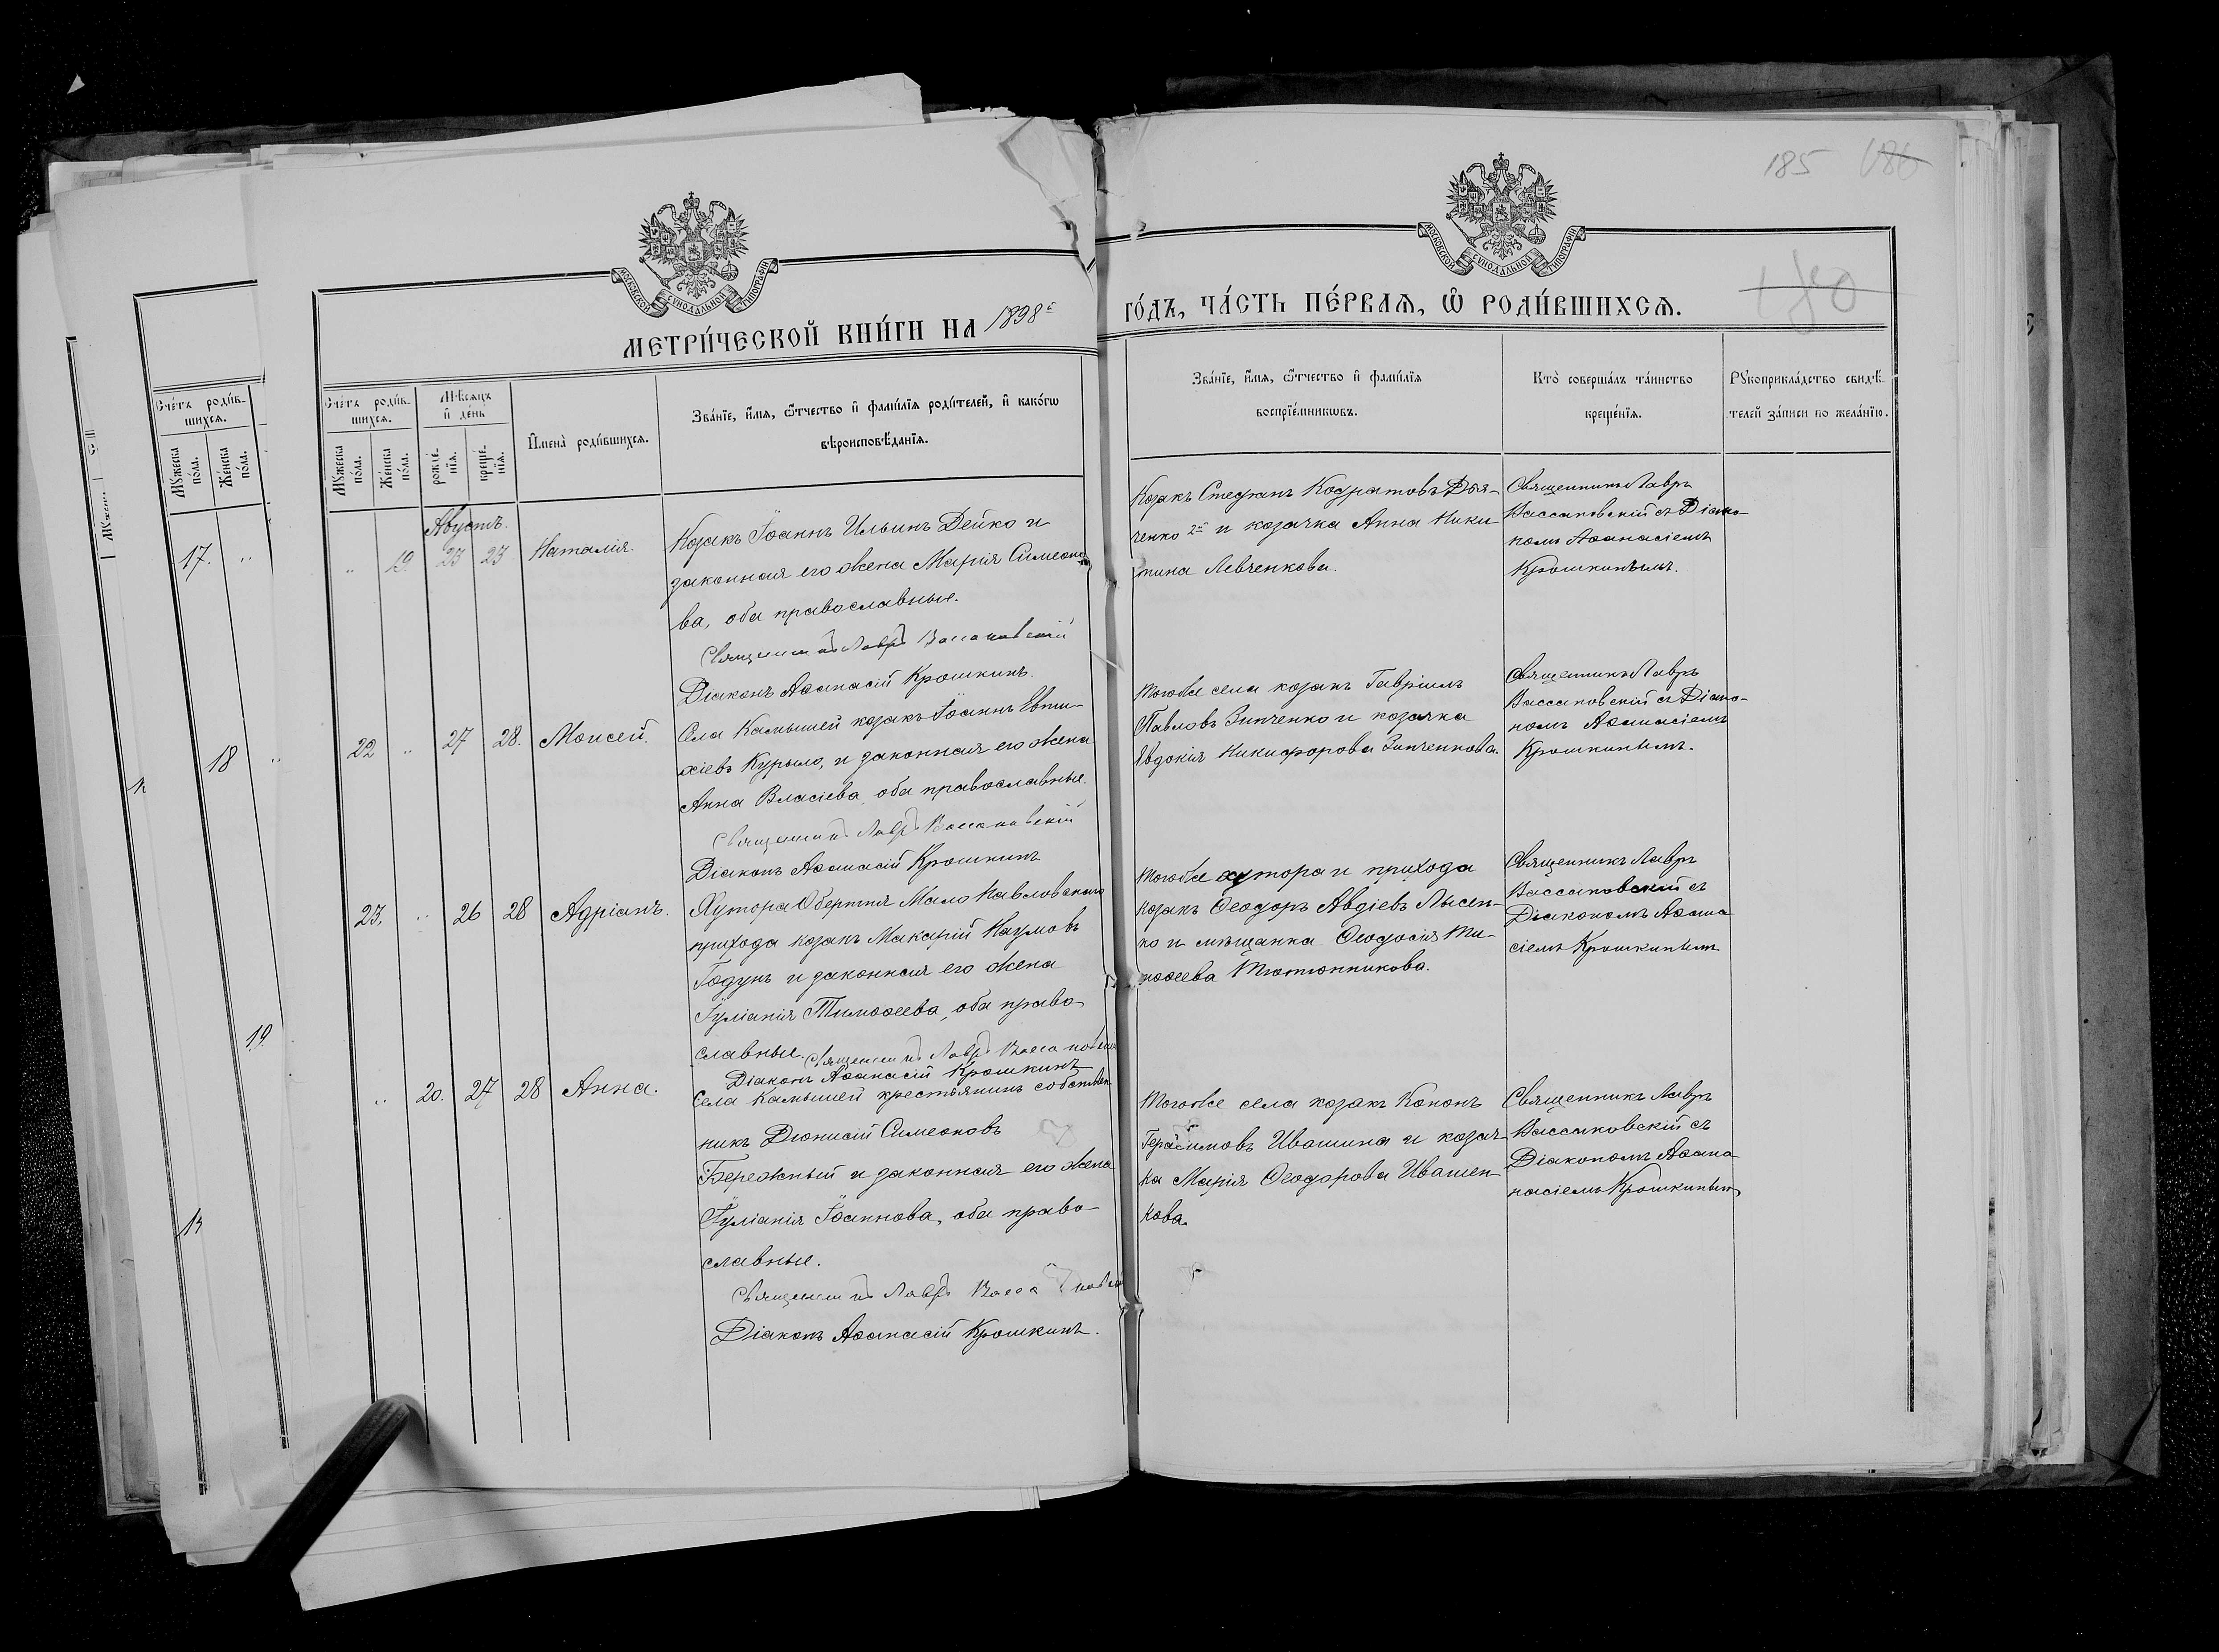 185 186
180
МОСКОВСКОЙ СѴНОДАЛЬНОЙ ТИПОГРАФІИ
МОСКОВСКОЙ СѴНОДАЛЬНОЙ ТИПОГРАФІИ
МЕТРИ́ЧЕСКОЙ КНИ́ГИ НА 1898й
ГО́ДЪ, ЧА́СТЬ ПЕ́РВАѦ, Ѿ РОДИ́ВШИХСѦ.
Сче́тъ роди́в-
шихсѧ.
Мꙋ́жеска по́ла.
Же́нска по́ла.
Сче́тъ роди́в-
шихсѧ.
Мꙋ́жеска по́ла.
Же́нска по́ла.
Мѣ́сѧцъ
и҆ де́нь
рожде́-
нїѧ.
креще́-
нїѧ.
И҆мена̀ роди́вшихсѧ.
Зва́нїе, и҆́мѧ, ѻ҆́тчество и҆ фамі́лїѧ роди́телей, и҆ како́гѡ
вѣроисповѣ́данїѧ.
Зва́нїе, и҆́мѧ, ѻ҆́тчество и҆ фамі́лїѧ
воспрїе́мникѡвъ.
Кто̀ соверша́лъ та́инство
креще́нїѧ.
Рꙋкоприкла́дство свидѣ́-
телей за́писи по жела́нїю.
17.
18
19.
Августъ.
19. 23 23 Наталія.
Козакъ Іоаннъ Ильинъ Дейко и
законная его жена Марія Симеоно
ва, оба православные.
Священникъ Лавръ Вассаковскій
Діаконъ Аѳанасій Крошкинъ.
Козакъ Стефанъ Кодратовъ Дья-
ченко 2й и козачка Анна Ники-
тина Левченкова.
Священникъ Лавръ
Вассаковскій съ Діако-
номъ Аѳанасіемъ
Крошкинымъ.
22 27 28. Моисей.
Села Камышей козакъ Іоаннъ Евти-
хіевъ Курыло, и законная его жена
Анна Власіева, оба православные.
Священникъ Лавръ Вассаковскій
Діаконъ Аѳанасій Крошкинъ
Тогоже села козакъ Гавріилъ
Павловъ Зинченко и козачка
Евдокія Никифорова Зинченкова.
Священникъ Лавръ
Вассаковскій съ Діако-
номъ Аѳанасіемъ
Крошкинымъ.
23. 26 28 Адріанъ.
Хутора Обертня Мало Павловскаго
прихода козакъ Макарій Наумовъ
Годунъ и законная его жена
Іуліанія Тимоѳеева, оба право
славные. Священникъ Лавръ Вассаковскій
Діаконъ Аѳанасій Крошкинъ
Тогоже хутора и прихода
козакъ Ѳеодоръ Авдіевъ Лысен-
ко и мѣщанка Ѳеодосія Ти-
моѳеева Тютюнникова.
Священникъ Лавръ
Вассаковскій съ
Діакономъ Аѳана
сіемъ Крошкинымъ
20. 27 28 Анна.
Села Камышей крестьянинъ собствен
никъ Діонисій Симеоновъ
Бережный и законная его жена
Іуліанія Іоаннова, оба право-
славные.
Священникъ Лавръ Вассаковскій
Діаконъ Аѳанасій Крошкинъ.
Тогоже села козакъ Кононъ
Герасимовъ Ивашина и козач-
ка Марія Ѳеодорова Ивашен-
кова.
Священникъ Лавръ
Вассаковскій съ
Діакономъ Аѳана
насіемъ Крошкинымъ